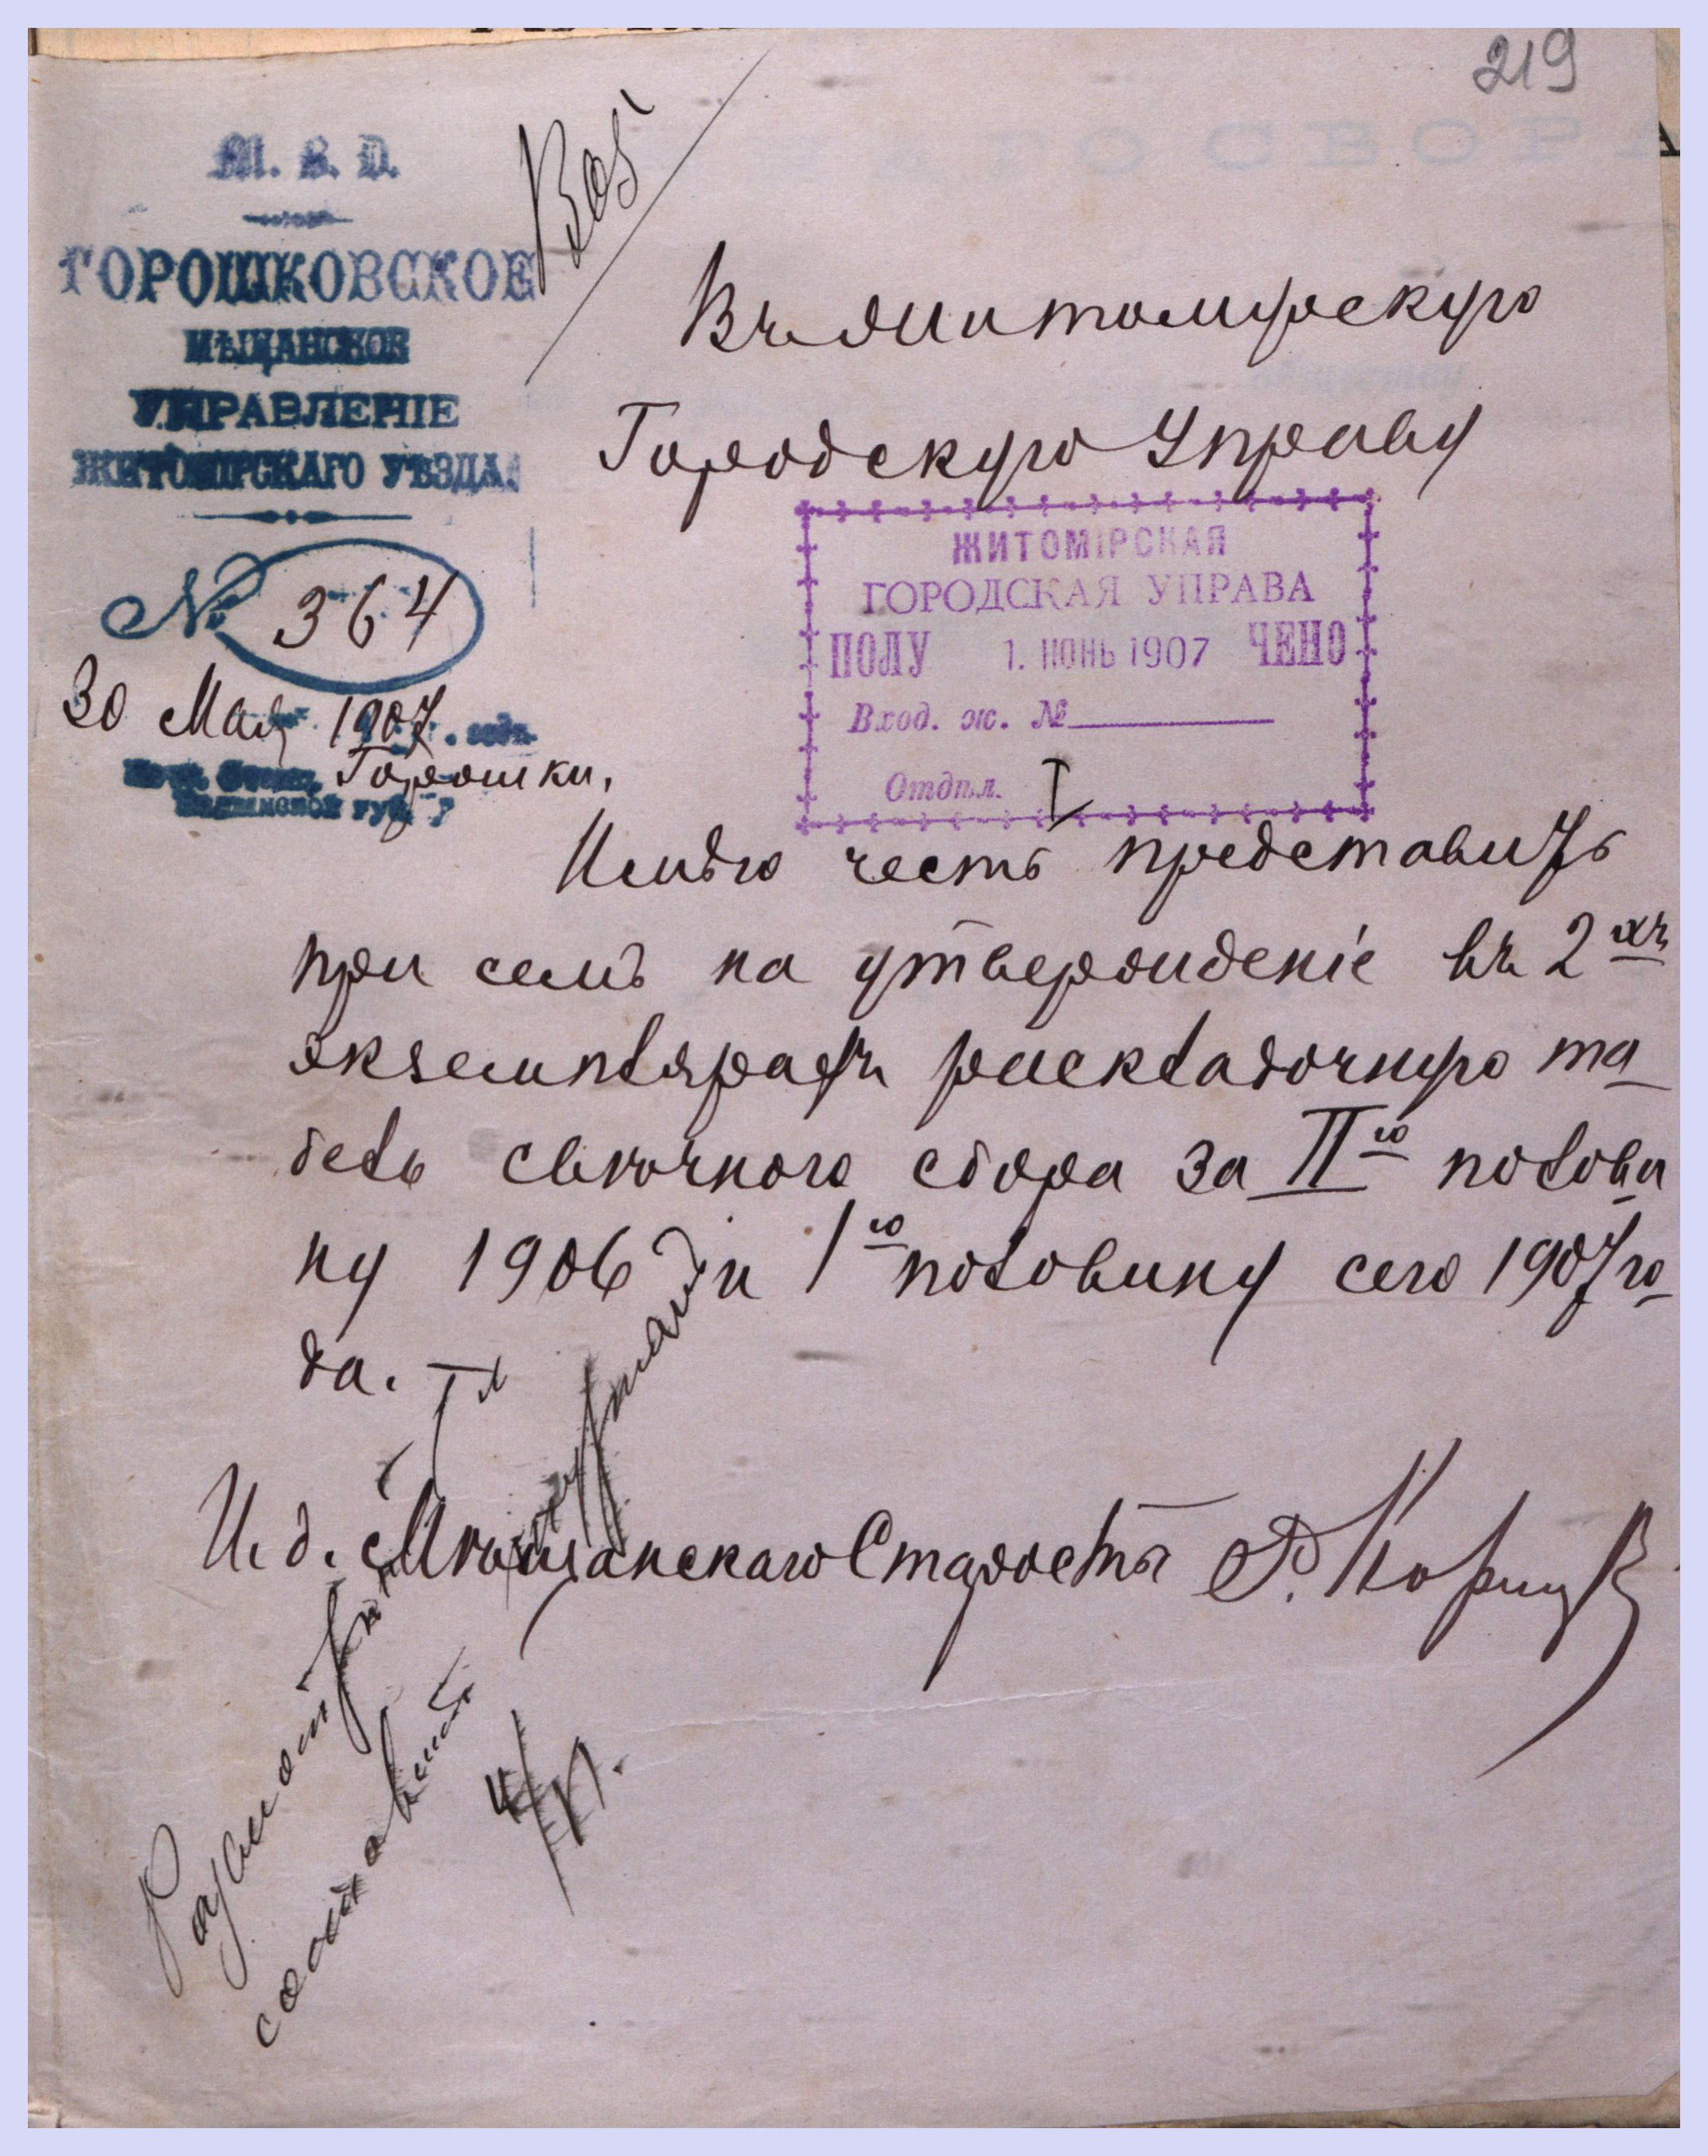 219
М. В. Д.
ГОРОШКОВСКОЕ
МѢЩАНСКОЕ
УПРАВЛЕНІЕ
ЖИТОМІРСКАГО УѢЗДА.
№ 364
30 Мая 1907 . года.
Горошки,
Волынской губ.
Въ Житомирскую
Городскую Управу
ЖИТОМІРСКАЯ
ГОРОДСКАЯ УПРАВА
ПОЛУ 1. ІЮНЬ 1907 ЧЕНО
Вход. ж. №
Отдѣл. I
Имѣю честь представить
при семъ на утвержденіе въ 2хъ
экземплярахъ раскладочную та
бель свѣчного сбора за IIю полови
ну 1906 и 1ю половину сего 1907 го
да.
И. д. Мѣщанскаго Старосты
составить